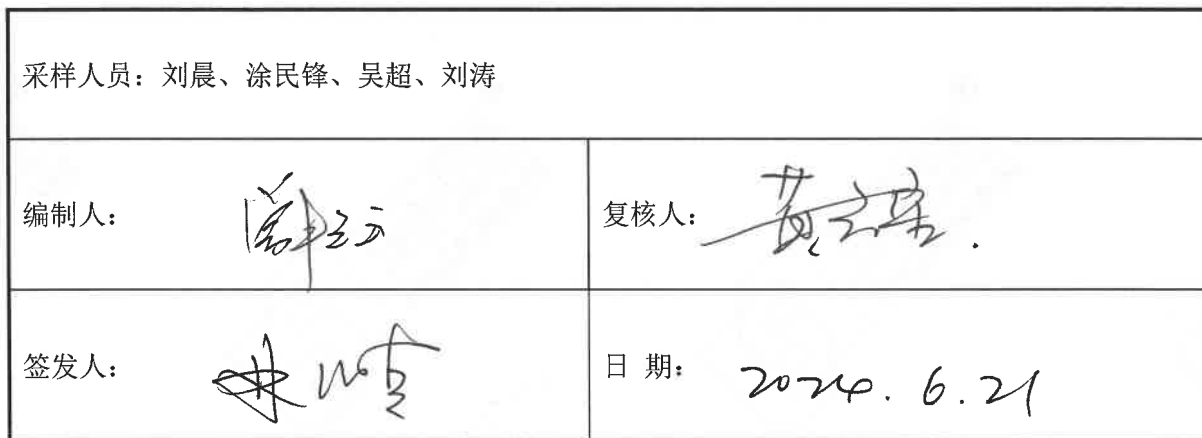 采样人员：刘晨、涂民锋、吴超、刘涛
编制人：
复核人：
签发人：
日 期： 2024. 6. 21